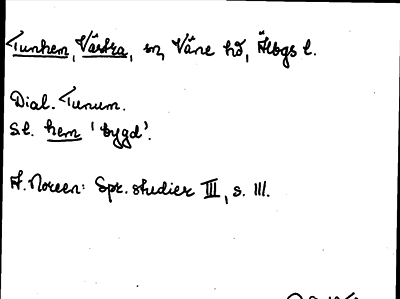 Tunhem, Västra, sn, Väne hd, Älvbgs l.
Dial. Tunum.
Sl. hem 'bygd'.
A. Noreen: Spr. studier III, s. 111.